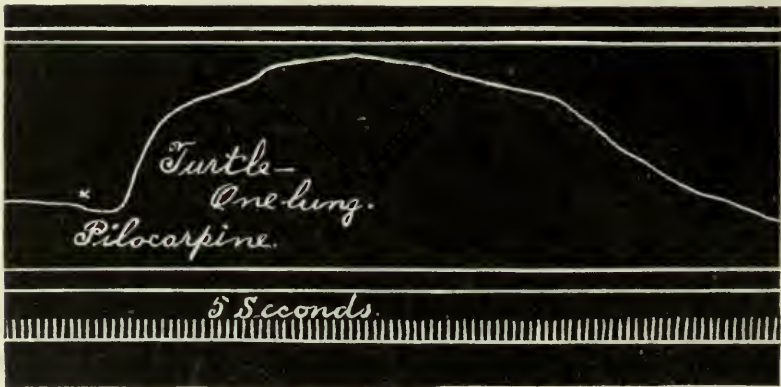 *
Turtle—
One lung.
Pilocarpine.
5 Seconds.